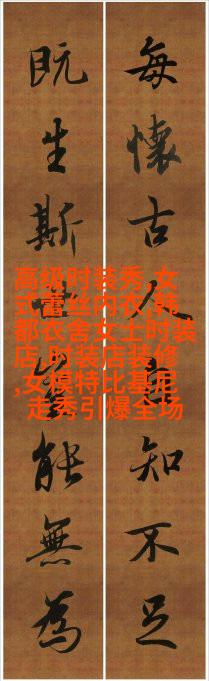 每懷古人知不足
既生斯能無為
高级时装秀,女
式蕾丝内衣,韩
都衣舍女士时装
店,时装店装修
,女模特比基尼
走秀引爆全场